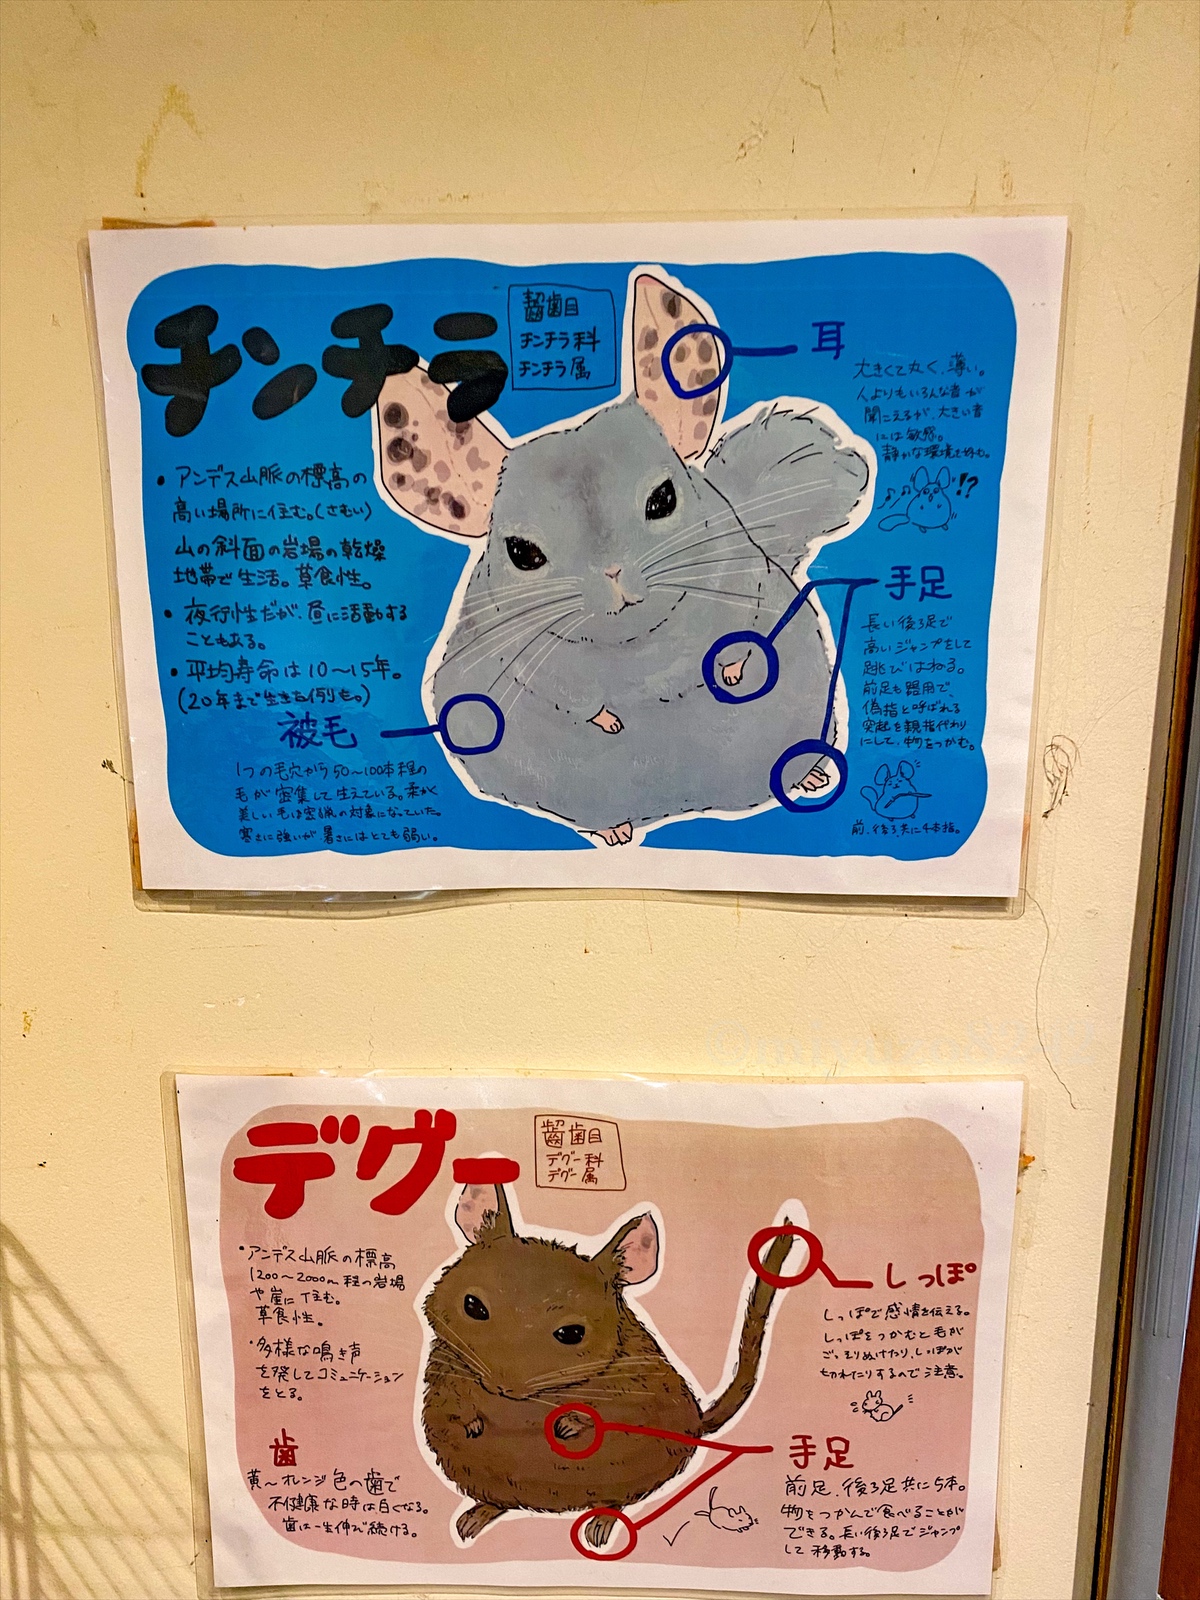 チンチラ
齧歯目
チンチラ科
チンチラ属
・アンデス山脈の標高の
高い場所に住む。(さむい)
山の斜面の岩場の乾燥
地帯で生活。草食性。
・夜行性だが、昼に活動する
こともある。
・平均寿命は10〜15年。
(20年まで生きる例も。)
被毛
1つの毛穴から50〜100本程の
毛が密集して生えている。柔かく
美しい毛は密猟の対象になっていた。
寒さに強いが暑さにはとても弱い。
耳
大きくて丸く、薄い。
人よりもいろんな音が
聞こえるが、大きい音
には敏感。
静かな環境を好む。
!?
手足
長い後ろ足で
高いジャンプをして
跳びはねる。
前足も器用で、
偽指と呼ばれる
突起を親指代わり
にして、物をつかむ。
前、後ろ共に4本指。
デグー
齧歯目
デグー科
デグー属
・アンデス山脈の標高
1200〜2000m程の岩場
や崖に住む。
草食性。
・多様な鳴き声
を発してコミュニケーション
をとる。
歯
黄〜オレンジ色の歯で
不健康な時は白くなる。
歯は一生伸び続ける。
しっぽ
しっぽで感情を伝える。
しっぽをつかむと毛が
ごっそりぬけたり、しっぽが
切れたりするので注意。
手足
前足、後ろ足共に5本。
物をつかんで食べることが
できる。長い後ろ足でジャンプ
して移動する。